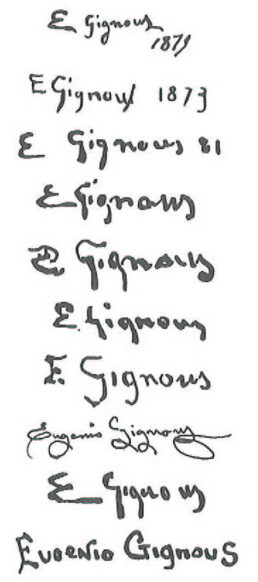 E Gignous
1879
E Gignous 1873
E Gignous 81
E Gignous
E. Gignous
E. Gignous
E. Gignous
Eugenio Gignous
E Gignous
EUGENIO GIGNOUS